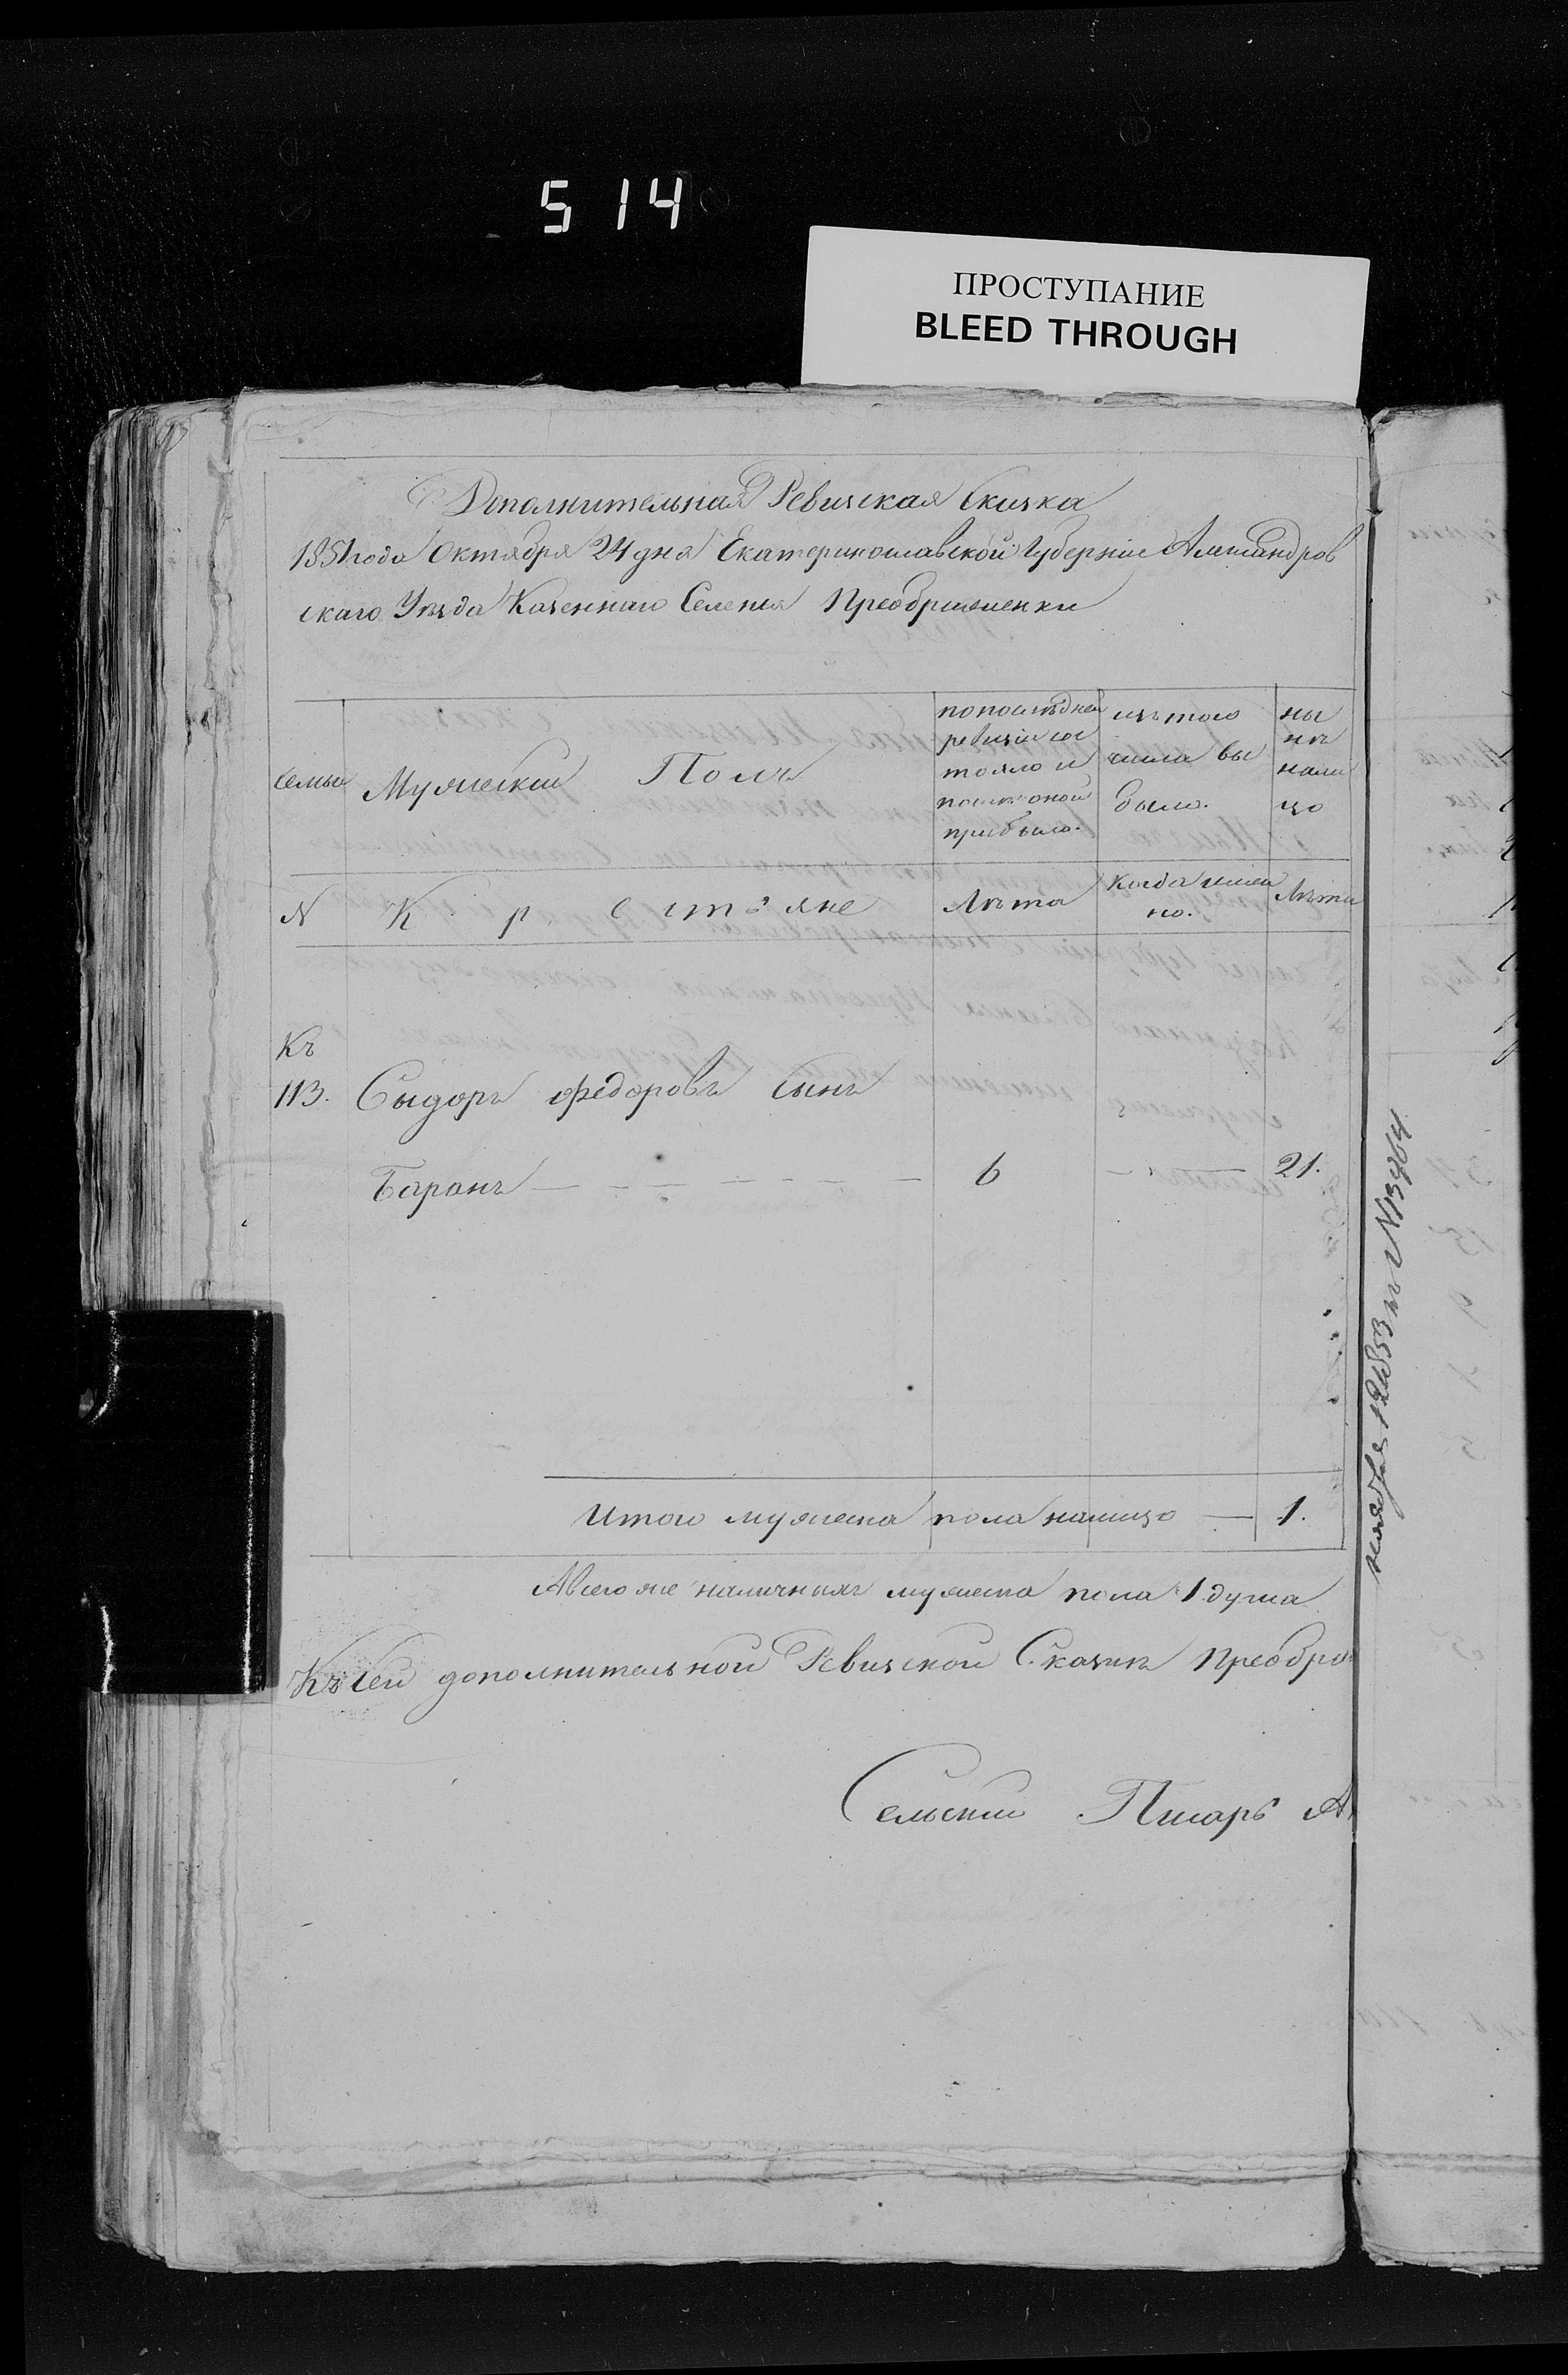 514
ПРОСТУПАНИЕ
BLEED THROUGH
Дополнительная Ревизская Сказка
1851 года Октября 24 дня Екатеринославской Губернiи Александров
скаго Уѣзда Казеннаго Селенiя Преображенки
Семьи
Мужескiй Полъ
по последней ревизiи сос тояло и послѣ оной прибыло.
изъ того числа вы было.
ны нѣ нали цо
N
Крестьяне
Лѣта
Когда имен но.
Лѣта
Къ
113. Сыдоръ Федоровъ сынъ
Баранъ — — — — — 6 — 21.
Итого мужеска пола налицо — 1.
А всего же наличныхъ мужеска пола 1 душа
Къ сей дополнительной Ревизской Сказкѣ Преобра
Сельскiй Писарь А